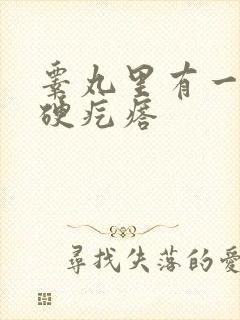 睾丸里有一
硬疙瘩
尋找失落的愛